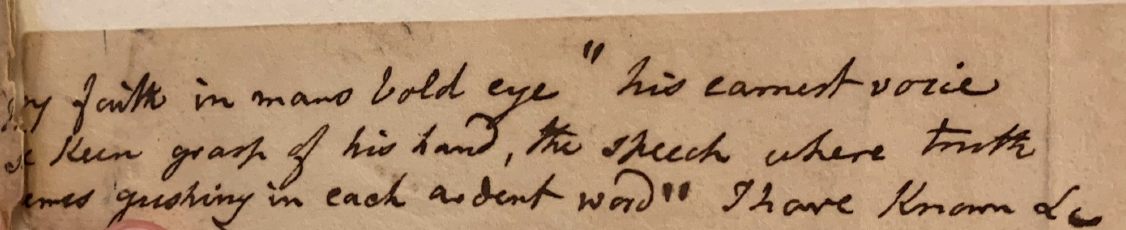 my faith in mans bold eye " his earnest voice
keen grasp of his hand, the speech where truth
gushing in each ardent word" I have Known